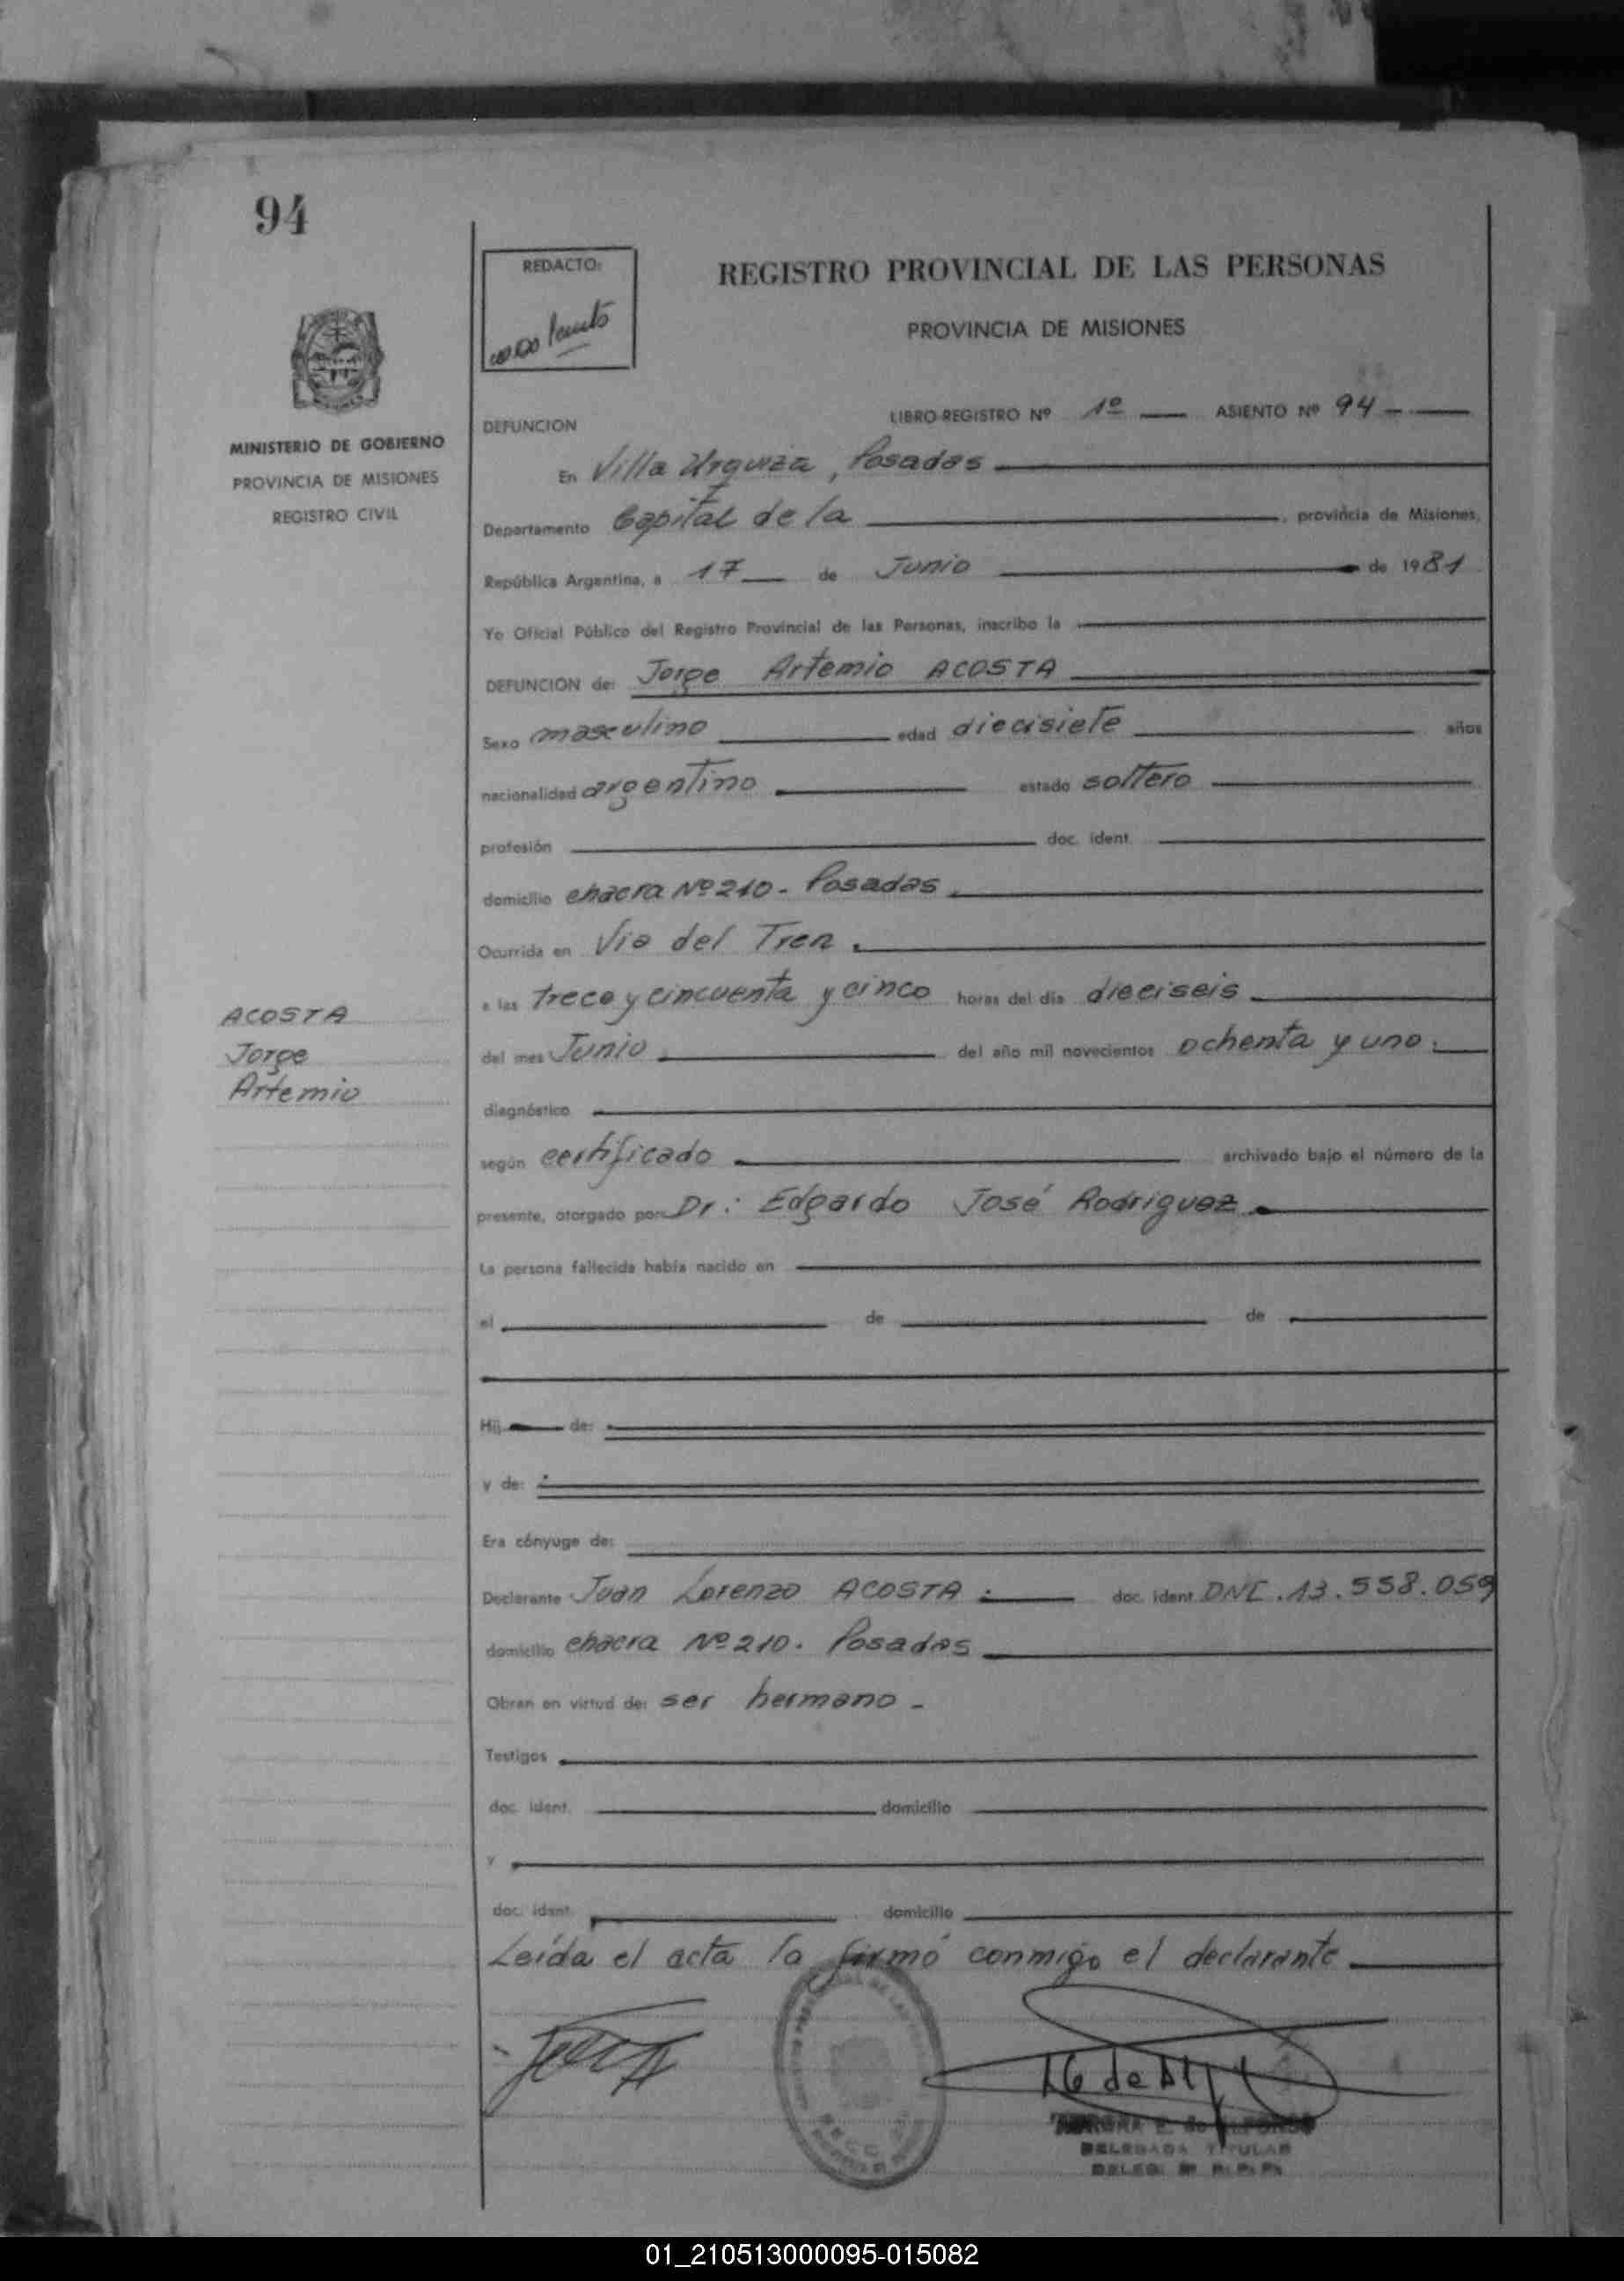 94
REDACTO:
REGISTRO PROVINCIAL DE LAS PERSONAS
PROVINCIA DE MISIONES
MINISTERIO DE GOBIERNO
PROVINCIA DE MISIONES
REGISTRO CIVIL
DEFUNCION
LIBRO-REGISTRO Nº 1º ASIENTO Nº 94
En Villa Urquiza, Posadas
Departamento Capital de la, provincia de Misiones,
República Argentina, a 17 de Junio de 1981
Yo Oficial Público del Registro Provincial de las Personas, inscribo la
DEFUNCION de: Jorge Artemio ACOSTA
Sexo masculino edad diecisiete años
nacionalidad argentino estado soltero
profesión doc. ident.
domicilio chacra Nº 210 - Posadas.
Ocurrida en Via del Tren.
a las trece y cincuenta y cinco horas del día dieciseis
del mes Junio. del año mil novecientos ochenta y uno.
ACOSTA
Jorge
Artemio
diagnóstico
según certificado archivado bajo el número de la
presente, otorgado por: Dr.: Edgardo José Rodriguez
La persona fallecida había nacido en
el de de
Hij de:
y de:
Era cónyuge de:
Declarante Juan Lorenzo ACOSTA: doc. ident. DNI. 13.558.059
domicilio chacra Nº 210. Posadas
Obran en virtud de: ser hermano -
Testigos
doc. ident. domicilio
y
doc. ident. domicilio
Leída el acta la firmó conmigo el declarante
DELEGADA TITULAR
01_210513000095-015082